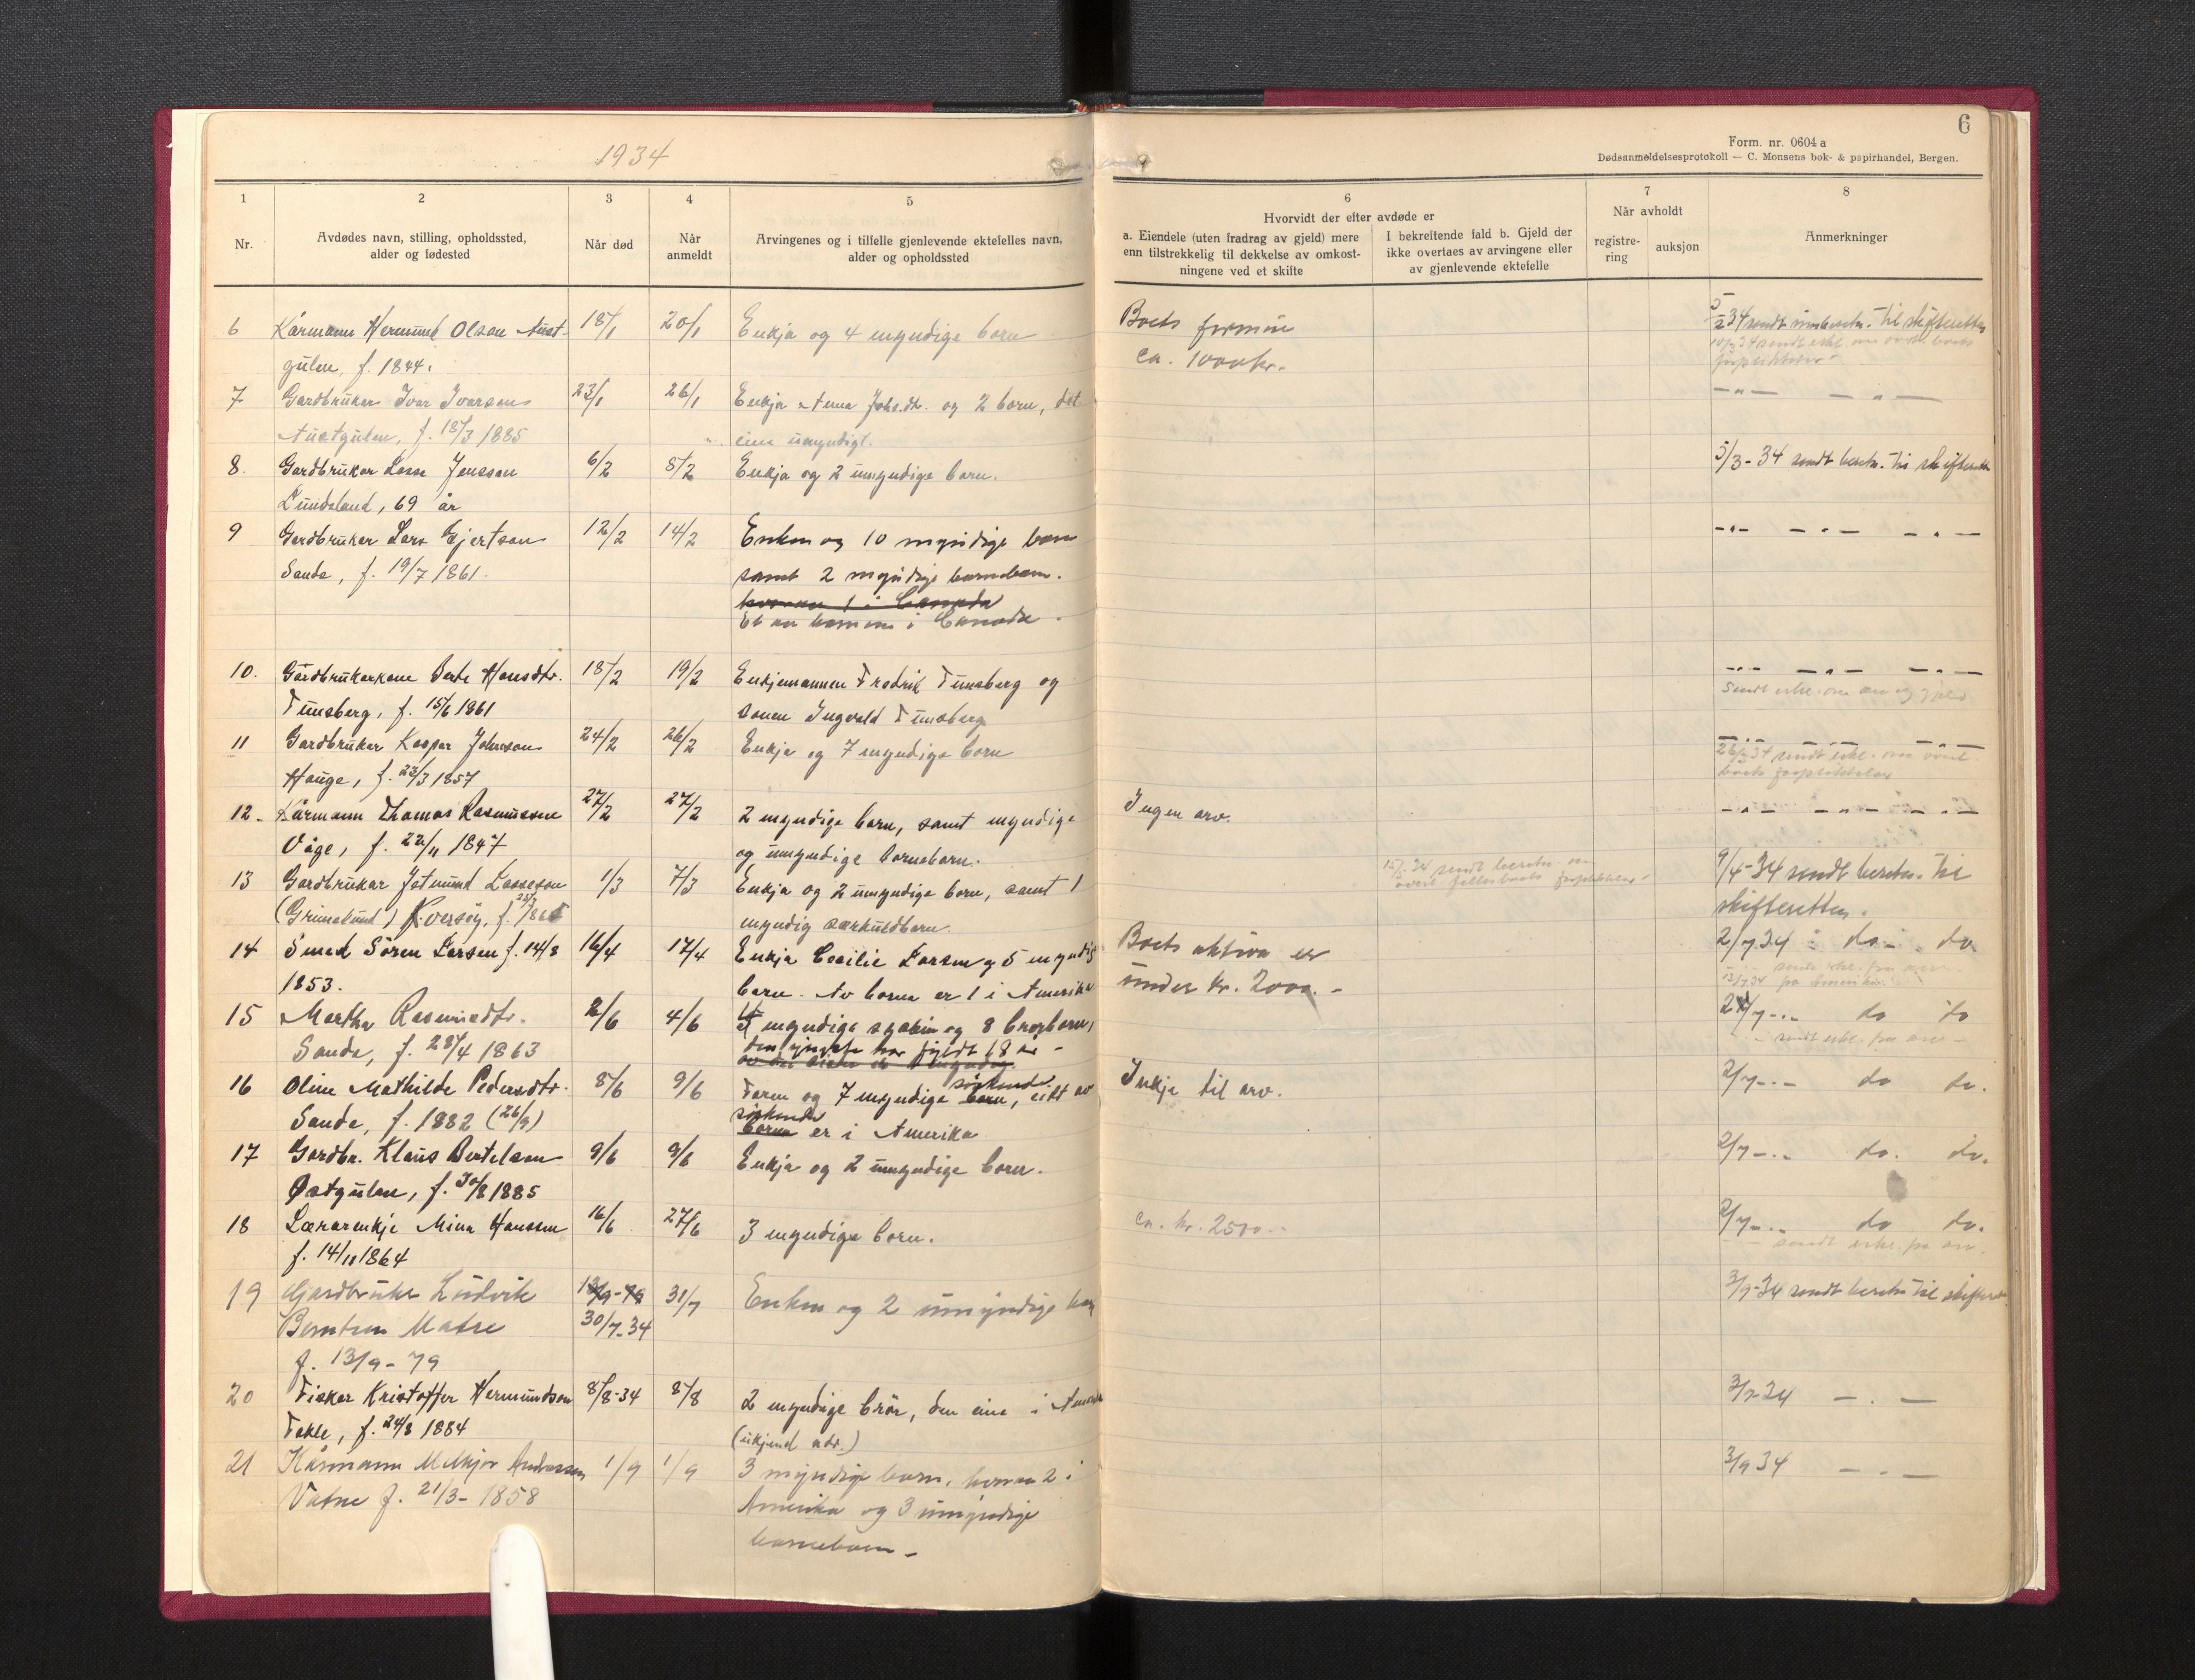 1934
6
Form. nr. 0604 a
Dødsanmeldelsesprotokoll — C. Monsens bok- & papirhandel, Bergen.
1
2
3
4
5
6
7
8
Nr.
Avdødes navn, stilling, opholdssted,
alder og fødested
Når død
Når
anmeldt
Arvingenes og i tilfelle gjenlevende ektefelles navn,
alder og opholdssted
Hvorvidt der efter avdøde er
a. Eiendele (uten fradrag av gjeld) mere
enn tilstrekkelig til dekkelse av omkost-
ningene ved et skifte
I bekreftende fald b. Gjeld der
ikke overtaes av arvingene eller
av gjenlevende ektefelle
Når avholdt
registre-
ring
auksjon
Anmerkninger
6 Kårmann Hermund Olson Aust- 18/1 20/1 Enkja og 4 myndige born Boets formue
gulen, f. 1844. ca. 1000 kr.
7 Gardbrukar Ivar Ivarson 23/1 26/1 Enkja Anna Johs.dtr. og 2 born, det
Austgulen, f. 18/3 1885 eine umyndigt.
8. Gardbrukar Lasse Jensson 6/2 8/2 Enkja og 2 umyndige born. 5/3-34 sendt beretn. til skifterett
Lundeland, 69 år
9 Gardbrukar Lars Gjertson 12/2 14/2 Enken og 10 myndige born
Sande, f. 19/7 1861. samt 2 myndige barnebarn.
hvorav 1 i Canada
Et av barnene i Canada.
10. Gardbrukarkone Berte Hansdtr. 18/2 19/2 Enkjemannen Fredrik Tunsberg og
Tunsberg, f. 15/6 1861 sonen Ingvald Tunsberg
11 Gardbrukar Kaspar Johnson 24/2 26/2 Enkja og 7 myndige born
Hauge, f. 23/3 1857
12. Kårmann Thomas Rasmussen 27/2 27/2 2 myndige born, samt myndige Ingen arv.
Våge, f. 22/11 1847 og umyndige borneborn.
13 Gardbrukar Jetmund Lasseson 1/3 7/3 Enkja og 2 umyndige born, samt 1 9/4-34 sendt beretn. til
(Grimelund) Kversøy, f. myndig særkuldborn. skifteretten.
14 Smed Sören Larsen f. 14/8 16/4 17/4 Enkja Cecilie Larsen og 5 myndig Boets aktiva er 2/7 34 do do
1853. born. Av borna er 1 i Amerika under kr. 2000.-
15 Martha Rasmusdtr. 2/6 4/6 myndige syskin og 8 brorborn, 2/7 do do
Sande, f. 28/4 1863 den yngste har fyldt 18 år -
16 Oline Mathilde Pedersdtr. 8/6 9/6 Faren og 7 myndige born søskend, eitt av Inkje til arv. 2/7 do do.
Sande, f. 1882 (26/9) borna søskende er i Amerika
17 Gardbr. Klaus Bertelsen 9/6 9/6 Enkja og 2 umyndige born. 2/7 do. do.
Østgulen, f. 30/8 1885
18 Lærarenkje Mina Hanssen 16/6 27/6 3 myndige born. ca. kr. 2500.- 2/7 do do.
f. 14/11 1864
19 Gardbruker Ludvik 31/7 Enken og 2 umyndige barn 3/9-34 sendt beretn til skifteret
Berntsen Matre 30/7-34
f. 13/9-79
20 Fisker Kristoffer Hermundson 8/8-34 8/8 2 myndige brør, den eine i Amerika 3/9-34
Takle, f. 24/8 1884 (ukjend adr.)
21 Kårmann Melkjor Andreassen 1/9 1/9 3 myndige barn, hvorav 2 i 3/9 34
Vatne f. 21/3-1858 Amerika og 3 umyndige
barnebarn -